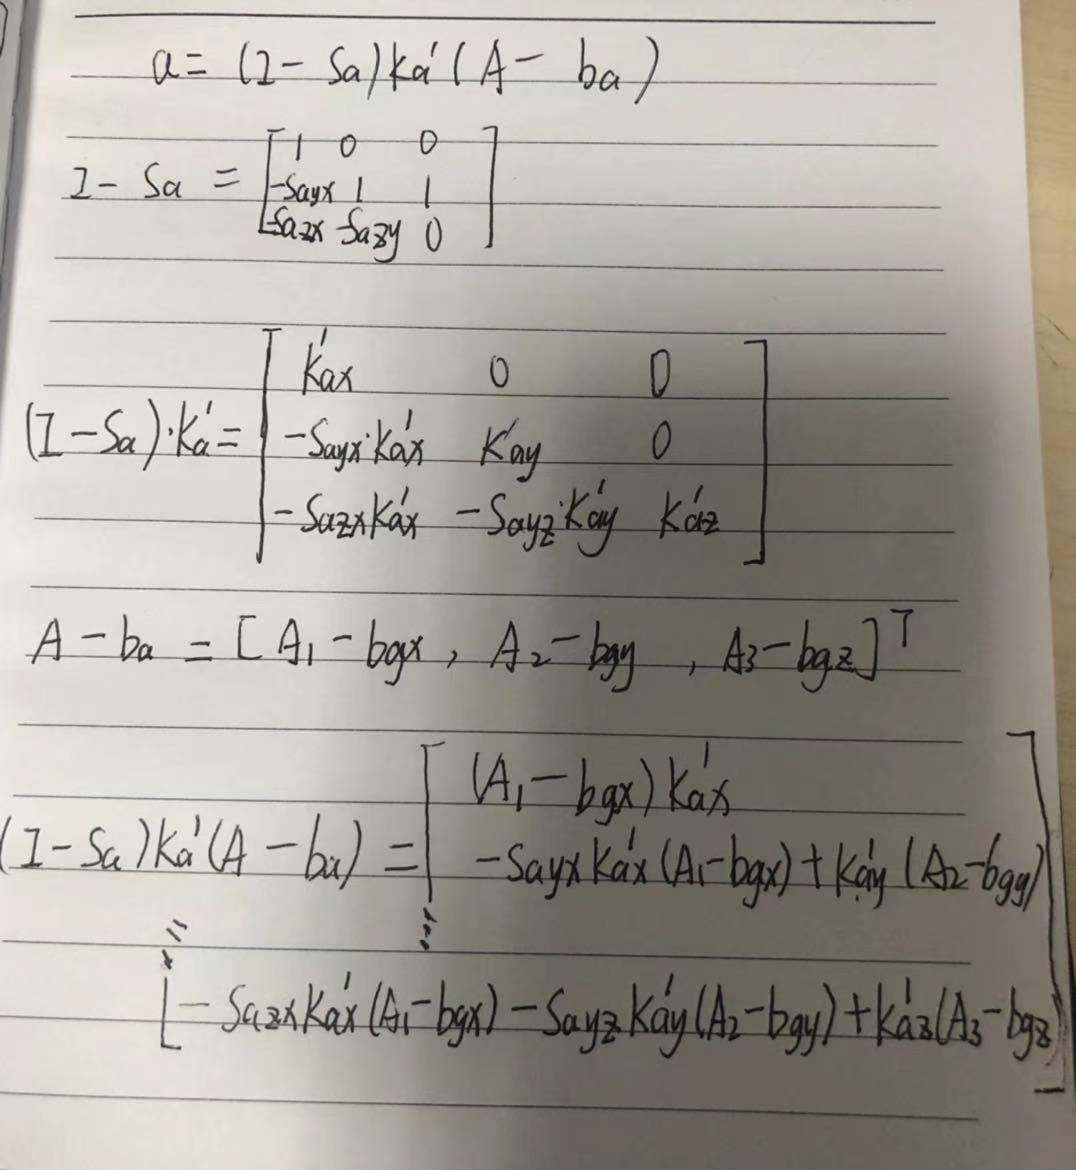 a = (I - Sa) Ka' (A - ba)
I - Sa = [ 1 0 0
-Sayx 1 1
-Sazx -Sazy 0 ]
(I - Sa)·Ka' = [ Kax' 0 0
-Sayx·Kax' Kay' 0
-SazxKax' -Sayz·Kay' Kaz' ]
A - ba = [A1 - bgx, A2 - bgy, A3 - bgz]T
(I - Sa)Ka'(A - ba) = [ (A1 - bgx)Kax'
-SayxKax'(A1-bgx) + Kay'(A2-bgy)
-SazxKax'(A1-bgx) - SayzKay'(A2-bgy) + Kaz'(A3-bgz) ]